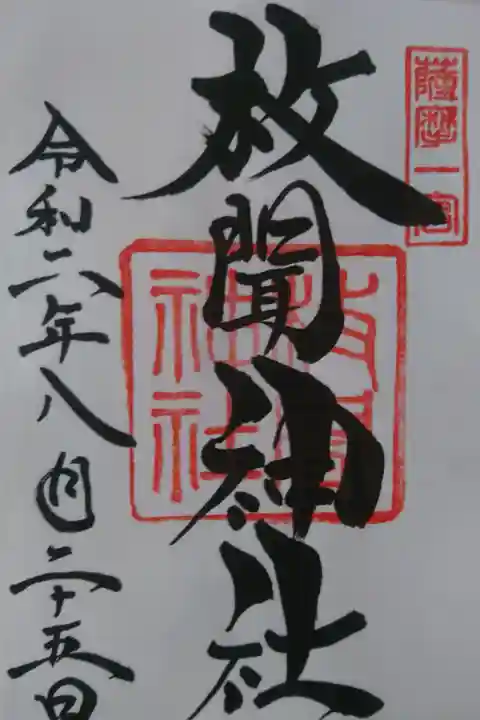 薩摩一宮
枚聞神社
枚聞
神社
令和二年八月二十五日